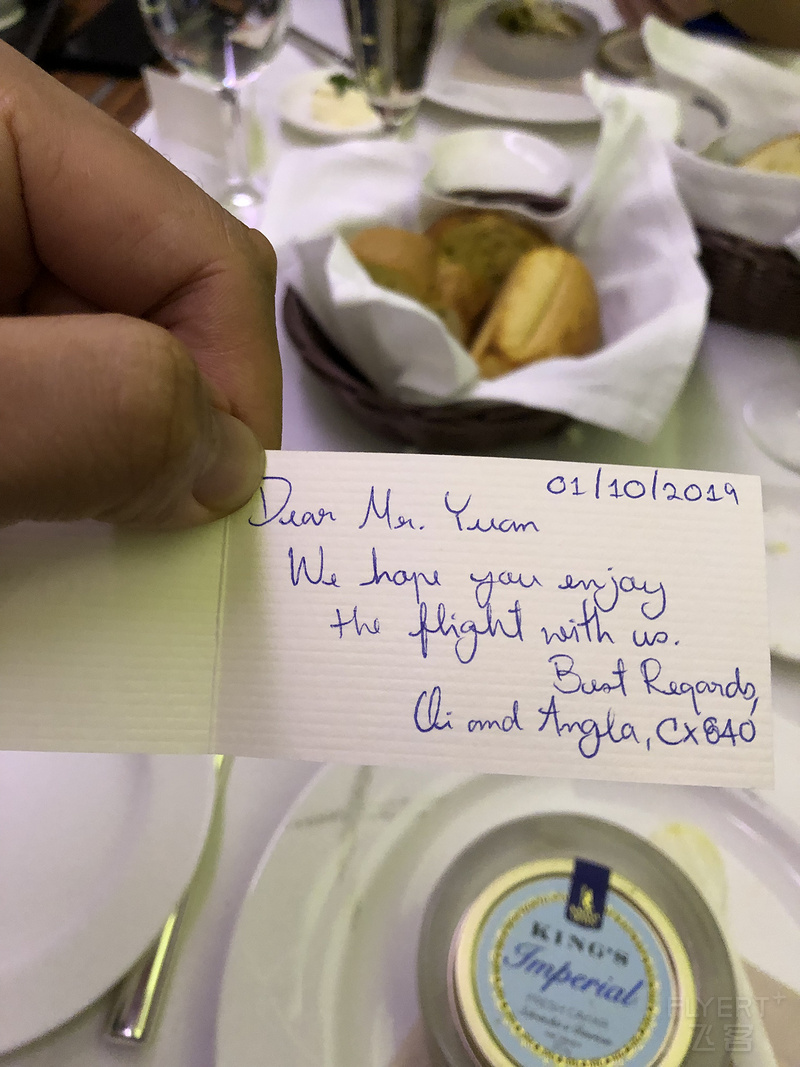 01/10/2019
Dear Mr. Yuan
We hope you enjoy
the flight with us.
Best Regards,
Chi and Angla, CX840
KING'S
Imperial
FLYERT+
飞客